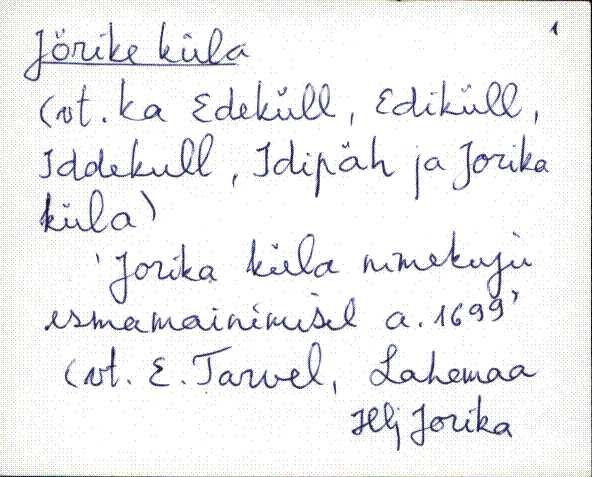 1
Jörike küla
(vt. ka Edeküll, Ediküll,
Iddekull, Idipäh ja Jorika
küla)
'Jorika küla nimekuju
esmamainimisel a. 1699'
(vt. E. Tarvel, Lahemaa
Hlj Jorika